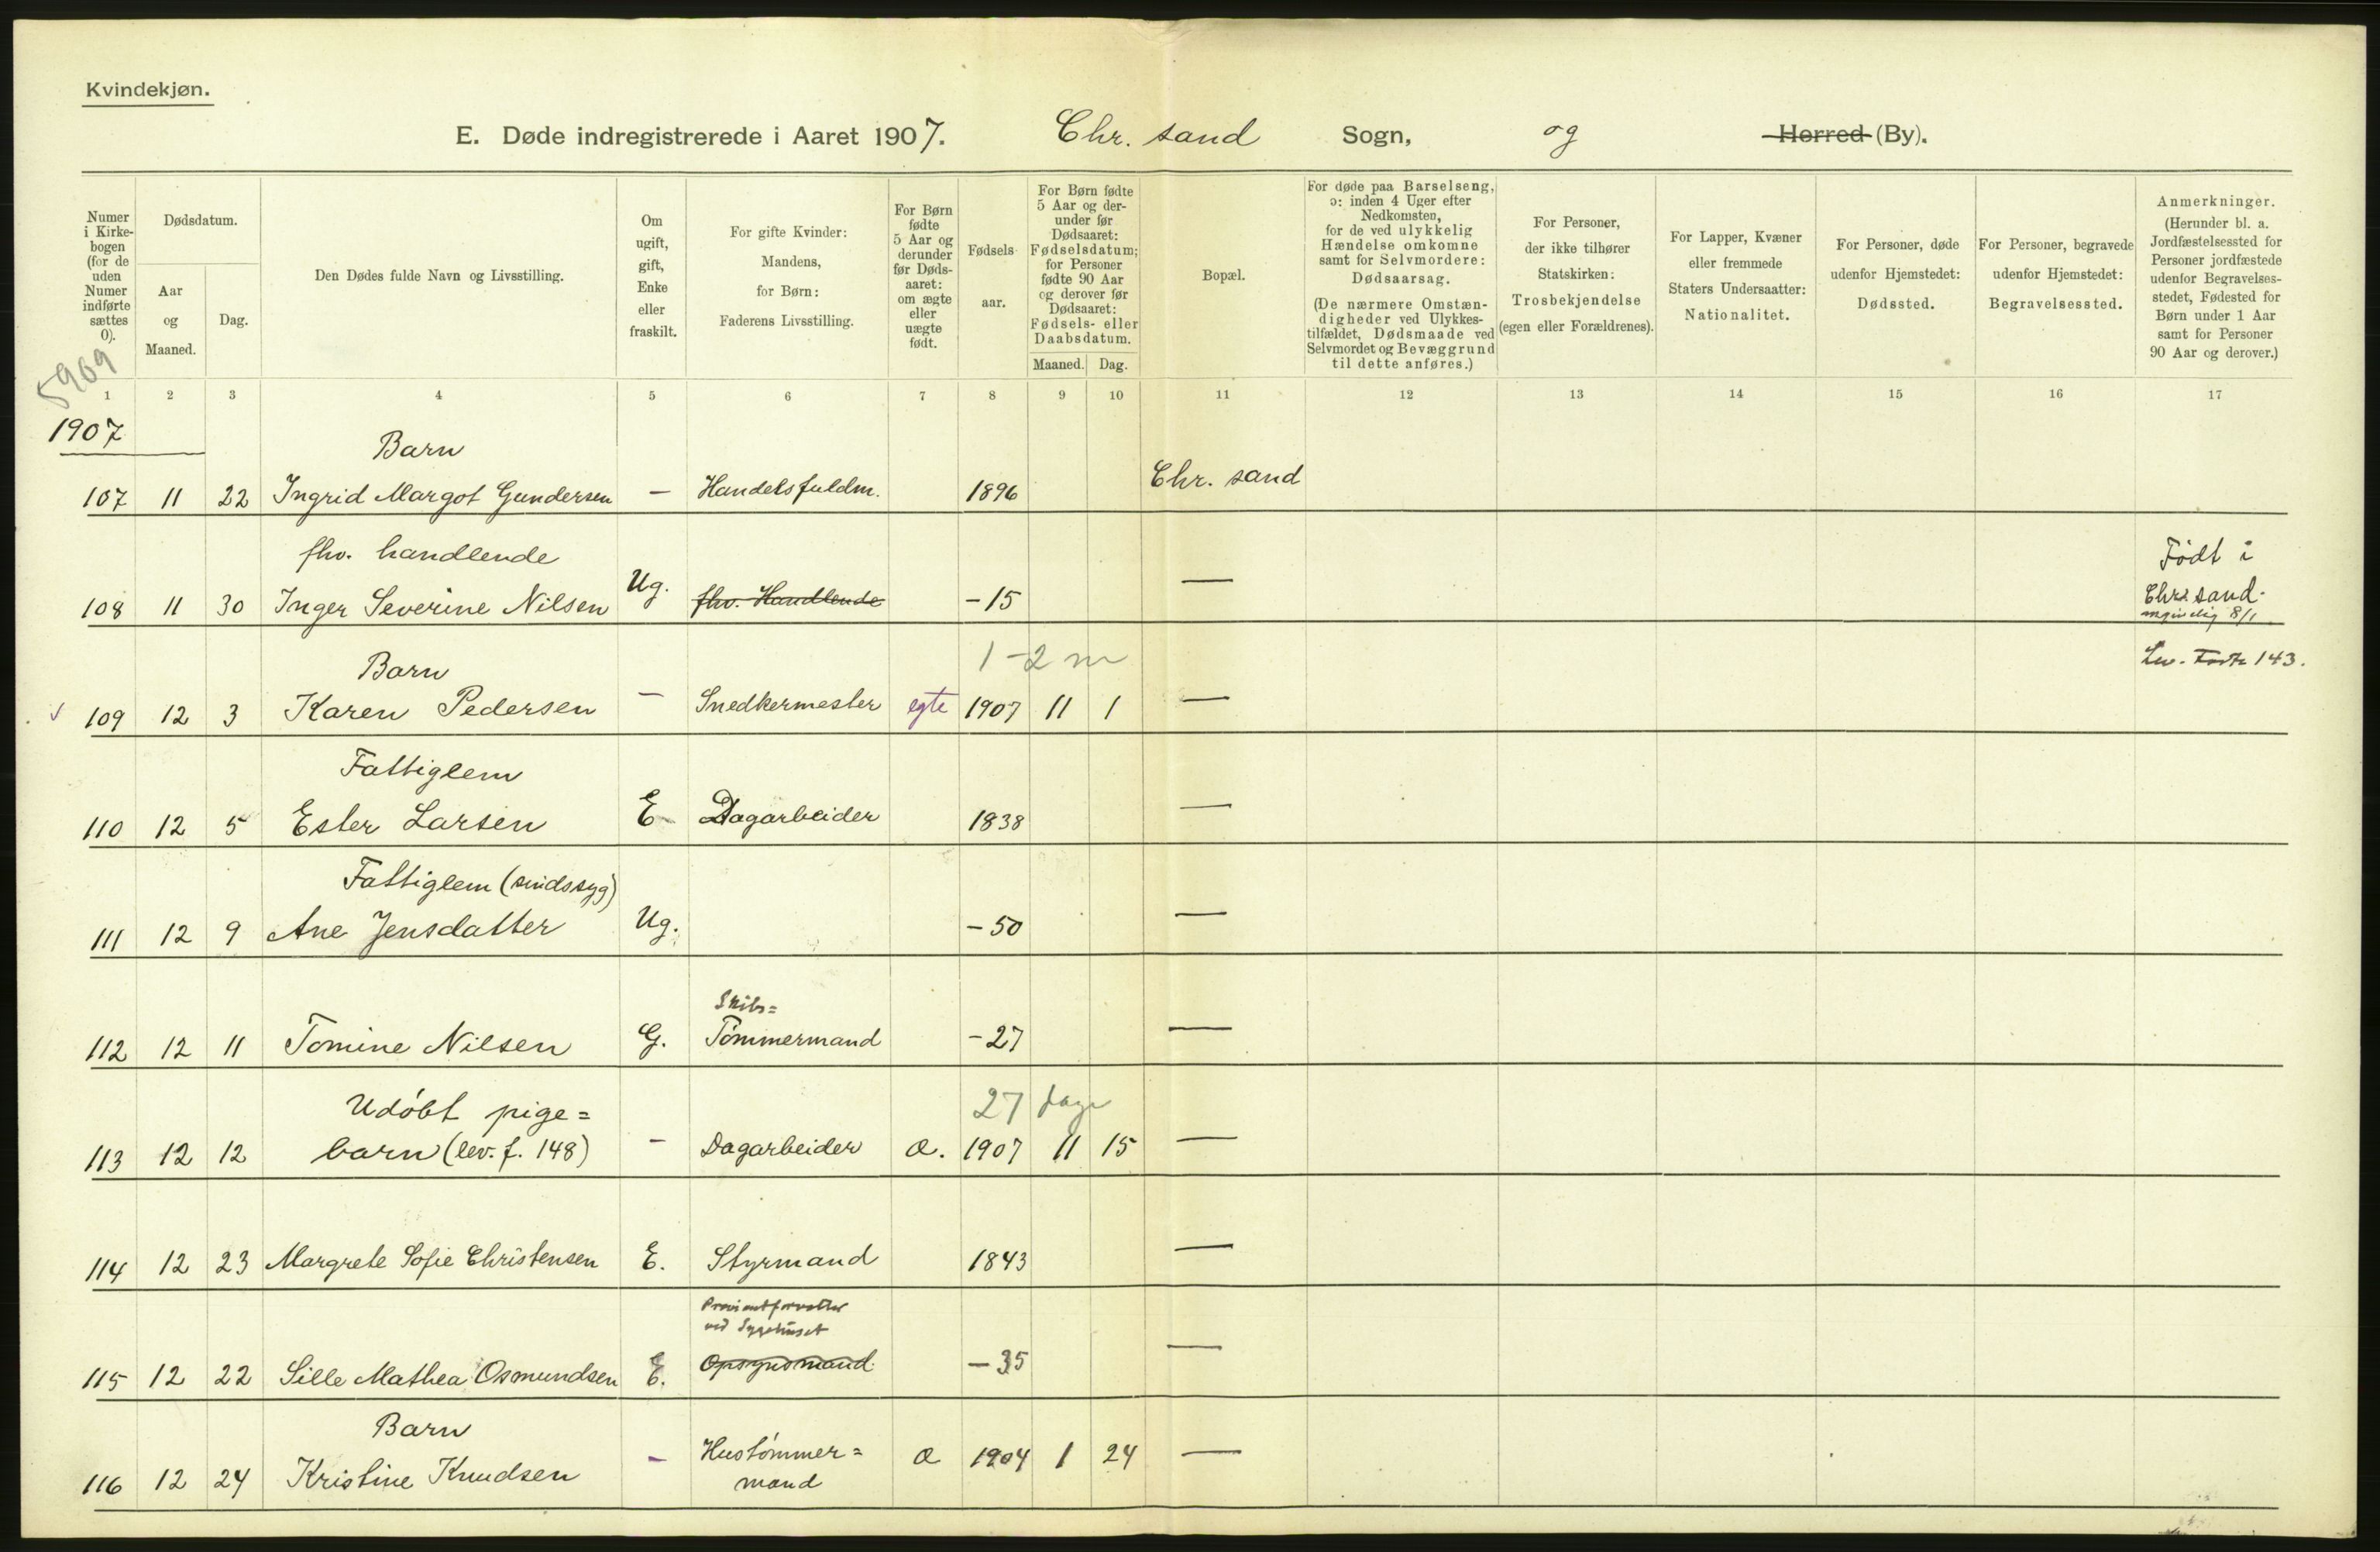 Kvindekjøn.
E. Døde indregistrerede i Aaret 1907. Chr. sand Sogn, og Herred (By).
Numer i Kirkebogen (for de uden Numer indførte sættes 0).
Dødsdatum.
Aar og Maaned.
Dag.
Den Dødes fulde Navn og Livsstilling.
Om ugift, gift, Enke eller fraskilt.
For gifte Kvinder: Mandens, for Børn: Faderens Livsstilling.
For Børn fødte 5 Aar og derunder før Dødsaaret: om ægte eller uægte født.
Fødselsaar.
For Børn fødte 5 Aar og derunder før Dødsaaret: Fødselsdatum; for Personer fødte 90 Aar og derover før Dødsaaret: Fødsels- eller Daabsdatum.
Maaned. Dag.
Bopæl.
For døde paa Barselseng, ɔ: inden 4 Uger efter Nedkomsten, for de ved ulykkelig Hændelse omkomne samt for Selvmordere: Dødsaarsag.
(De nærmere Omstændigheder ved Ulykkestilfældet, Dødsmaade ved Selvmordet og Bevæggrund til dette anføres.)
For Personer, der ikke tilhører Statskirken: Trosbekjendelse (egen eller Forældrenes).
For Lapper, Kvæner eller fremmede Staters Undersaatter: Nationalitet.
For Personer, døde udenfor Hjemstedet: Dødssted.
For Personer, begravede udenfor Hjemstedet: Begravelsessted.
Anmerkninger.
(Herunder bl. a. Jordfæstelsessted for Personer jordfæstede udenfor Begravelsesstedet, Fødested for Børn under 1 Aar samt for Personer 90 Aar og derover.)
5969
1 2 3 4 5 6 7 8 9 10 11 12 13 14 15 16 17
1907
Barn
107 11 22 Ingrid Margot Gundersen — Handelsfuldm. 1896 Chr. sand
fhv. handlende Født i
108 11 30 Inger Severine Nilsen Ug. fhv. Handlende -15 — Chr. sand.
8/1
Barn 1-2 m Lev. 143.
109 12 3 Karen Pedersen — Snedkermester egte 1907 11 1 —
Fattiglem
110 12 5 Ester Larsen E Dagarbeider 1838 —
Fattiglem (sindssyg)
111 12 9 Ane Jensdatter Ug. -50 —
Skibs=
112 12 11 Tomine Nilsen G. Tømmermand -27 —
Udøbt pige= 27 dage
113 12 12 barn (lev. f. 148) - Dagarbeider Æ. 1907 11 15 —
114 12 23 Margrete Sofie Christensen E. Styrmand 1843 —
Proviantforvalter
ved Sygehuset
115 12 22 Sille Mathea Osmundsen E. Opsynsmand -35 —
Barn
116 12 24 Kristine Knudsen - Hustømmer= Æ 1904 1 24 —
mand